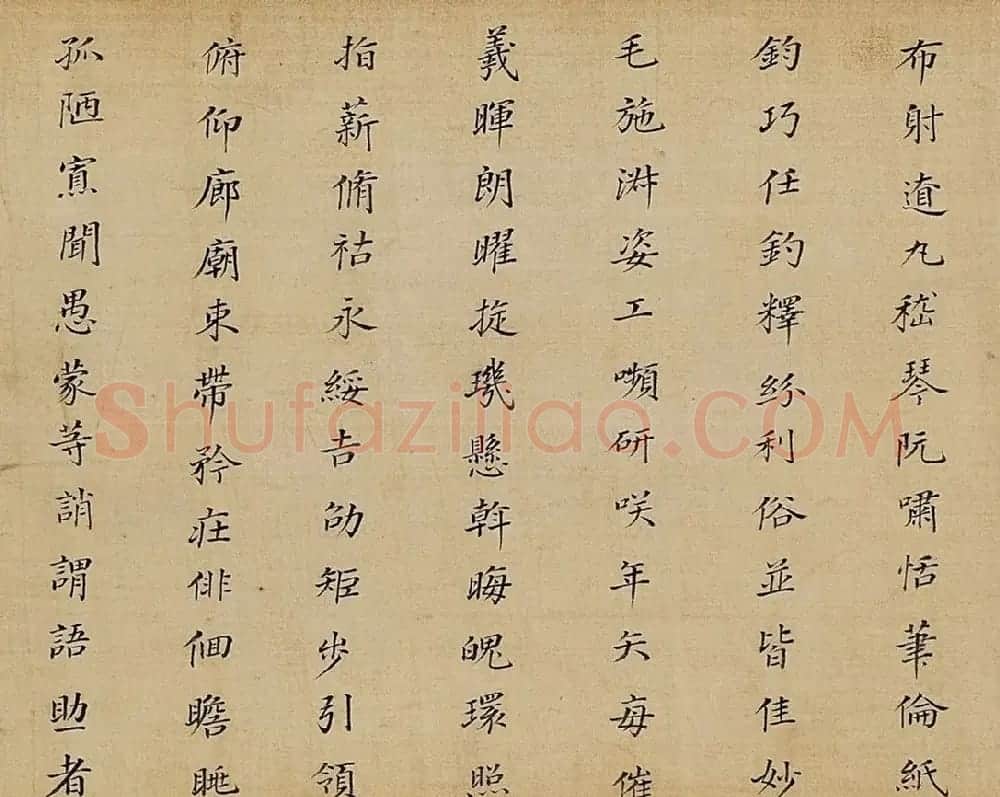 布射遼丸嵇琴阮嘯恬筆倫紙
鈞巧任釣釋紛利俗並皆佳妙
毛施淑姿工嚬研咲年矢每催
羲暉朗曜旋璣懸斡晦魄環照
指薪脩祜永綏吉劭矩步引領
俯仰廊廟束帶矜莊俳佪瞻眺
孤陋寡聞愚蒙等誚謂語助者
Shufaziliao.COM